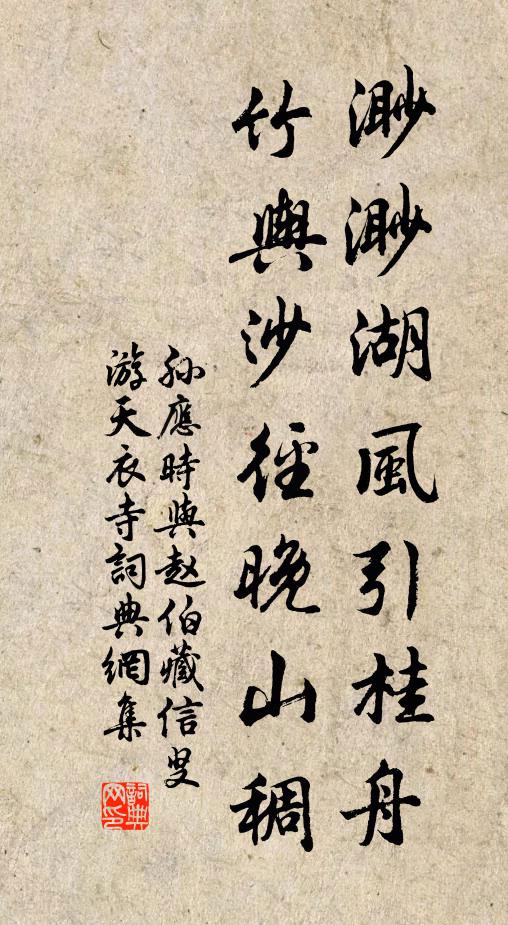 渺渺湖風引桂舟
竹輿沙徑晚山稠
孙應時與赵伯藏信叟
游天衣寺詞典網集
詞典
网印